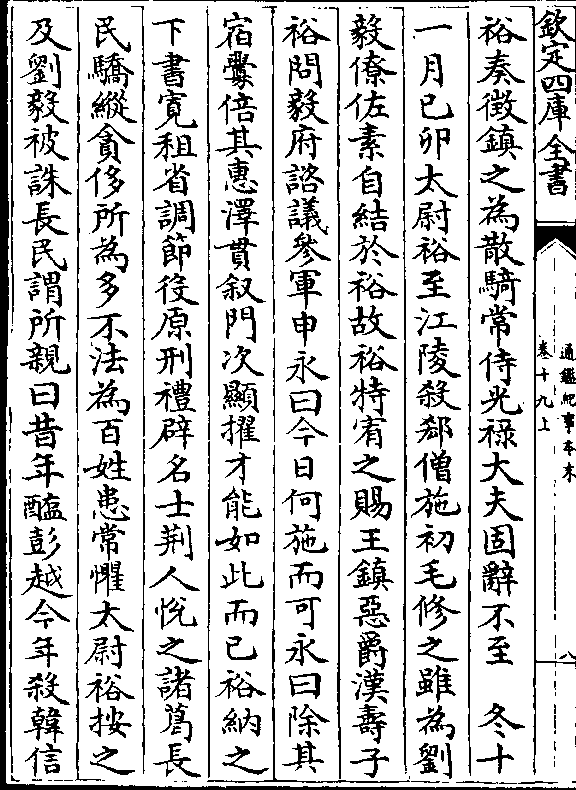 欽定四庫全書
通鑑紀事本末
卷十九上
八
裕奏徵鎮之為散騎常侍光祿大夫固辭不至　冬十
一月己卯太尉裕至江陵殺郄僧施初毛修之雖為劉
毅僚佐素自結於裕故裕特宥之賜王鎮惡爵漢壽子
裕問毅府諮議參軍申永曰今日何施而可永曰除其
宿釁倍其惠澤貫叙門次顯擢才能如此而已裕納之
下書寛租省調節役原刑禮辟名士荆人悅之諸葛長
民驕縱貪侈所為多不法為百姓患常懼太尉裕按之
及劉毅被誅長民謂所親曰昔年醢彭越今年殺韓信